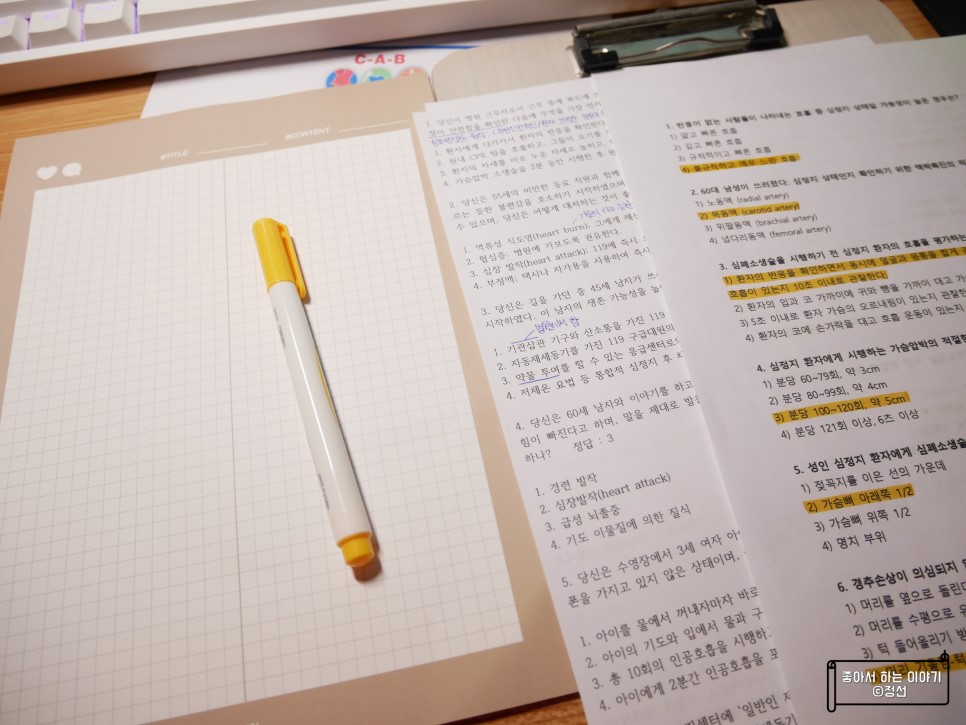 C-A-B
#TITLE
#CONTENT
1. 당신이 병원 근무자로서 근무 중에 복도에
1. 환자에게 다가가서 환자의 반응을 확인한다
2. 원내 CPR 팀을 호출하고, 그들이 오기를
3. 환자의 자세를 바로 누운 자세로 눕히고,
4. 가슴압박 소생술을 2분 동안 시행한 후
2. 당신은 55세의 비만한 동료 직원과 함께
르는 듯한 불편감을 호소하기 시작하였으며
수 있으며, 당신은 어떻게 대처하는 것이
1. 역류성 식도염(heart burn): 그에게 제산
2. 협심증: 병원에 가보도록 권유한다.
3. 심장 발작(heart attack): 119에 즉시
4. 부정맥: 택시나 자가용을 사용하여 즉시
3. 당신은 길을 가던 중 45세 남자가
시작하였다. 이 남자의 생존 가능성을
병원에서 함
1. 기관삽관 기구와 산소통을 가진 119
2. 자동제세동기를 가진 119 구급대원의
3. 약물 투여를 할 수 있는 응급센터로의
4. 저체온 요법 등 통합적 심정지 후
4. 당신은 60세 남자와 이야기를 하고
힘이 빠진다고 하며, 말을 제대로
하나? 정답 : 3
1. 경련 발작
2. 심장발작(heart attack)
3. 급성 뇌졸중
4. 기도 이물질에 의한 질식
5. 당신은 수영장에서 3세 여자
폰을 가지고 있지 않은 상태이며,
1. 아이를 물에서 꺼내자마자 바로
2. 아이의 기도와 입에서 물과
3. 총 10회의 인공호흡을 시행하
4. 아이에게 2분간 인공호흡을
1. 반응이 없는 사람들이 나타내는 호흡 중 심정지 상태일 가능성이 높은 경우는?
1) 얕고 빠른 호흡
2) 깊고 빠른 호흡
3) 규칙적이고 빠른 호흡
4) 불규칙하고 매우 느린 호흡
2. 60대 남성이 쓰러졌다. 심정지 상태인지 확인하기 위한 맥박확인의
1) 노동맥 (radial artery)
2) 목동맥 (carotid artery)
3) 위팔동맥 (brachial artery)
4) 넙다리동맥 (femoral artery)
3. 심폐소생술을 시행하기 전 심정지 환자의 호흡을 평가하는
1) 환자의 반응을 확인하면서 동시에 얼굴과 몸통을
호흡이 있는지 10초 이내로 관찰한다.
2) 환자의 입과 코 가까이에 귀와 뺨을 가까이 대고
3) 5초 이내로 환자 가슴의 오르내림이 있는지 관찰한
4) 환자의 코에 손가락을 대고 호흡 운동이 있는지
4. 심정지 환자에게 시행하는 가슴압박의 적절한
1) 분당 60~79회, 약 3cm
2) 분당 80~99회, 약 4cm
3) 분당 100~120회, 약 5cm
4) 분당 121회 이상, 6즈 이상
5. 성인 심정지 환자에게 심폐소생술
1) 젖꼭지를 이은 선의 가운데
2) 가슴뼈 아래쪽 1/2
3) 가슴뼈 위쪽 1/2
4) 명치 부위
6. 경추손상이 의심되지
1) 머리를 옆으로 돌린다
2) 머리를 수평으로
3) 턱 들어올리기
좋아서 하는 이야기
©정선